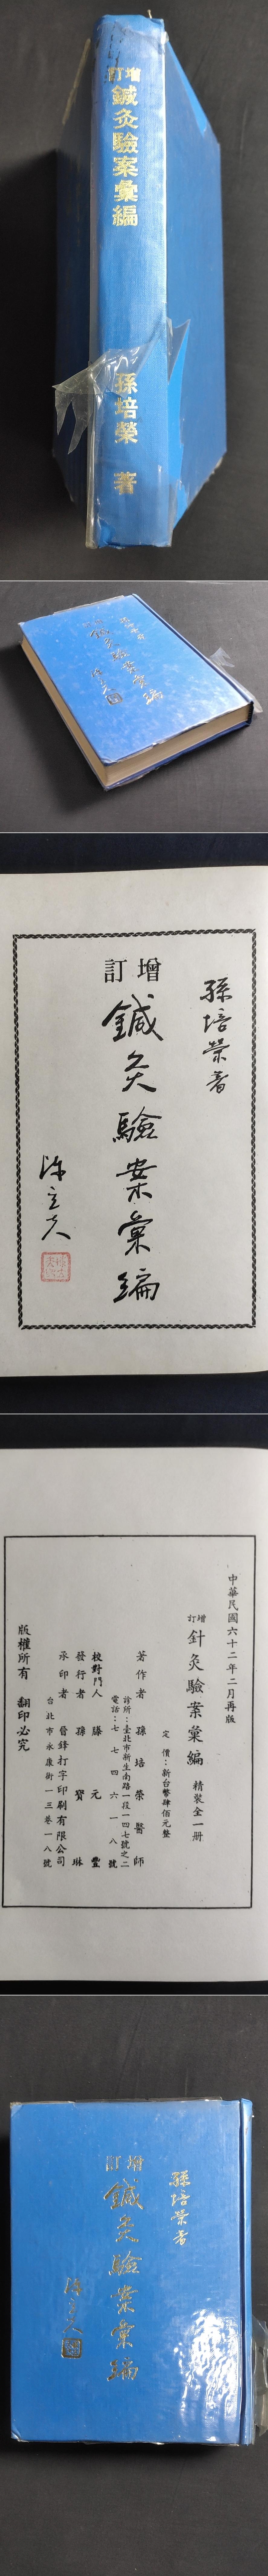 增訂
鍼灸驗案彙編
孫培榮 著
孫培榮著
增訂
鍼灸驗案彙編
陳立夫
中華民國六十二年二月再版
增訂
針灸驗案彙編 精裝全一冊
定 價：新台幣肆佰元整
著作者 孫培榮醫師
診所：臺北市新生南路一段一四七號之二
電話：七七四六一八號
校對門人 滕元豐
發行者 孫寶琳
承印者 晉鋒打字印刷有限公司
台北市永康街一三巷一八號
版權所有 翻印必究
孫培榮著
增訂
鍼灸驗案彙編
陳立夫